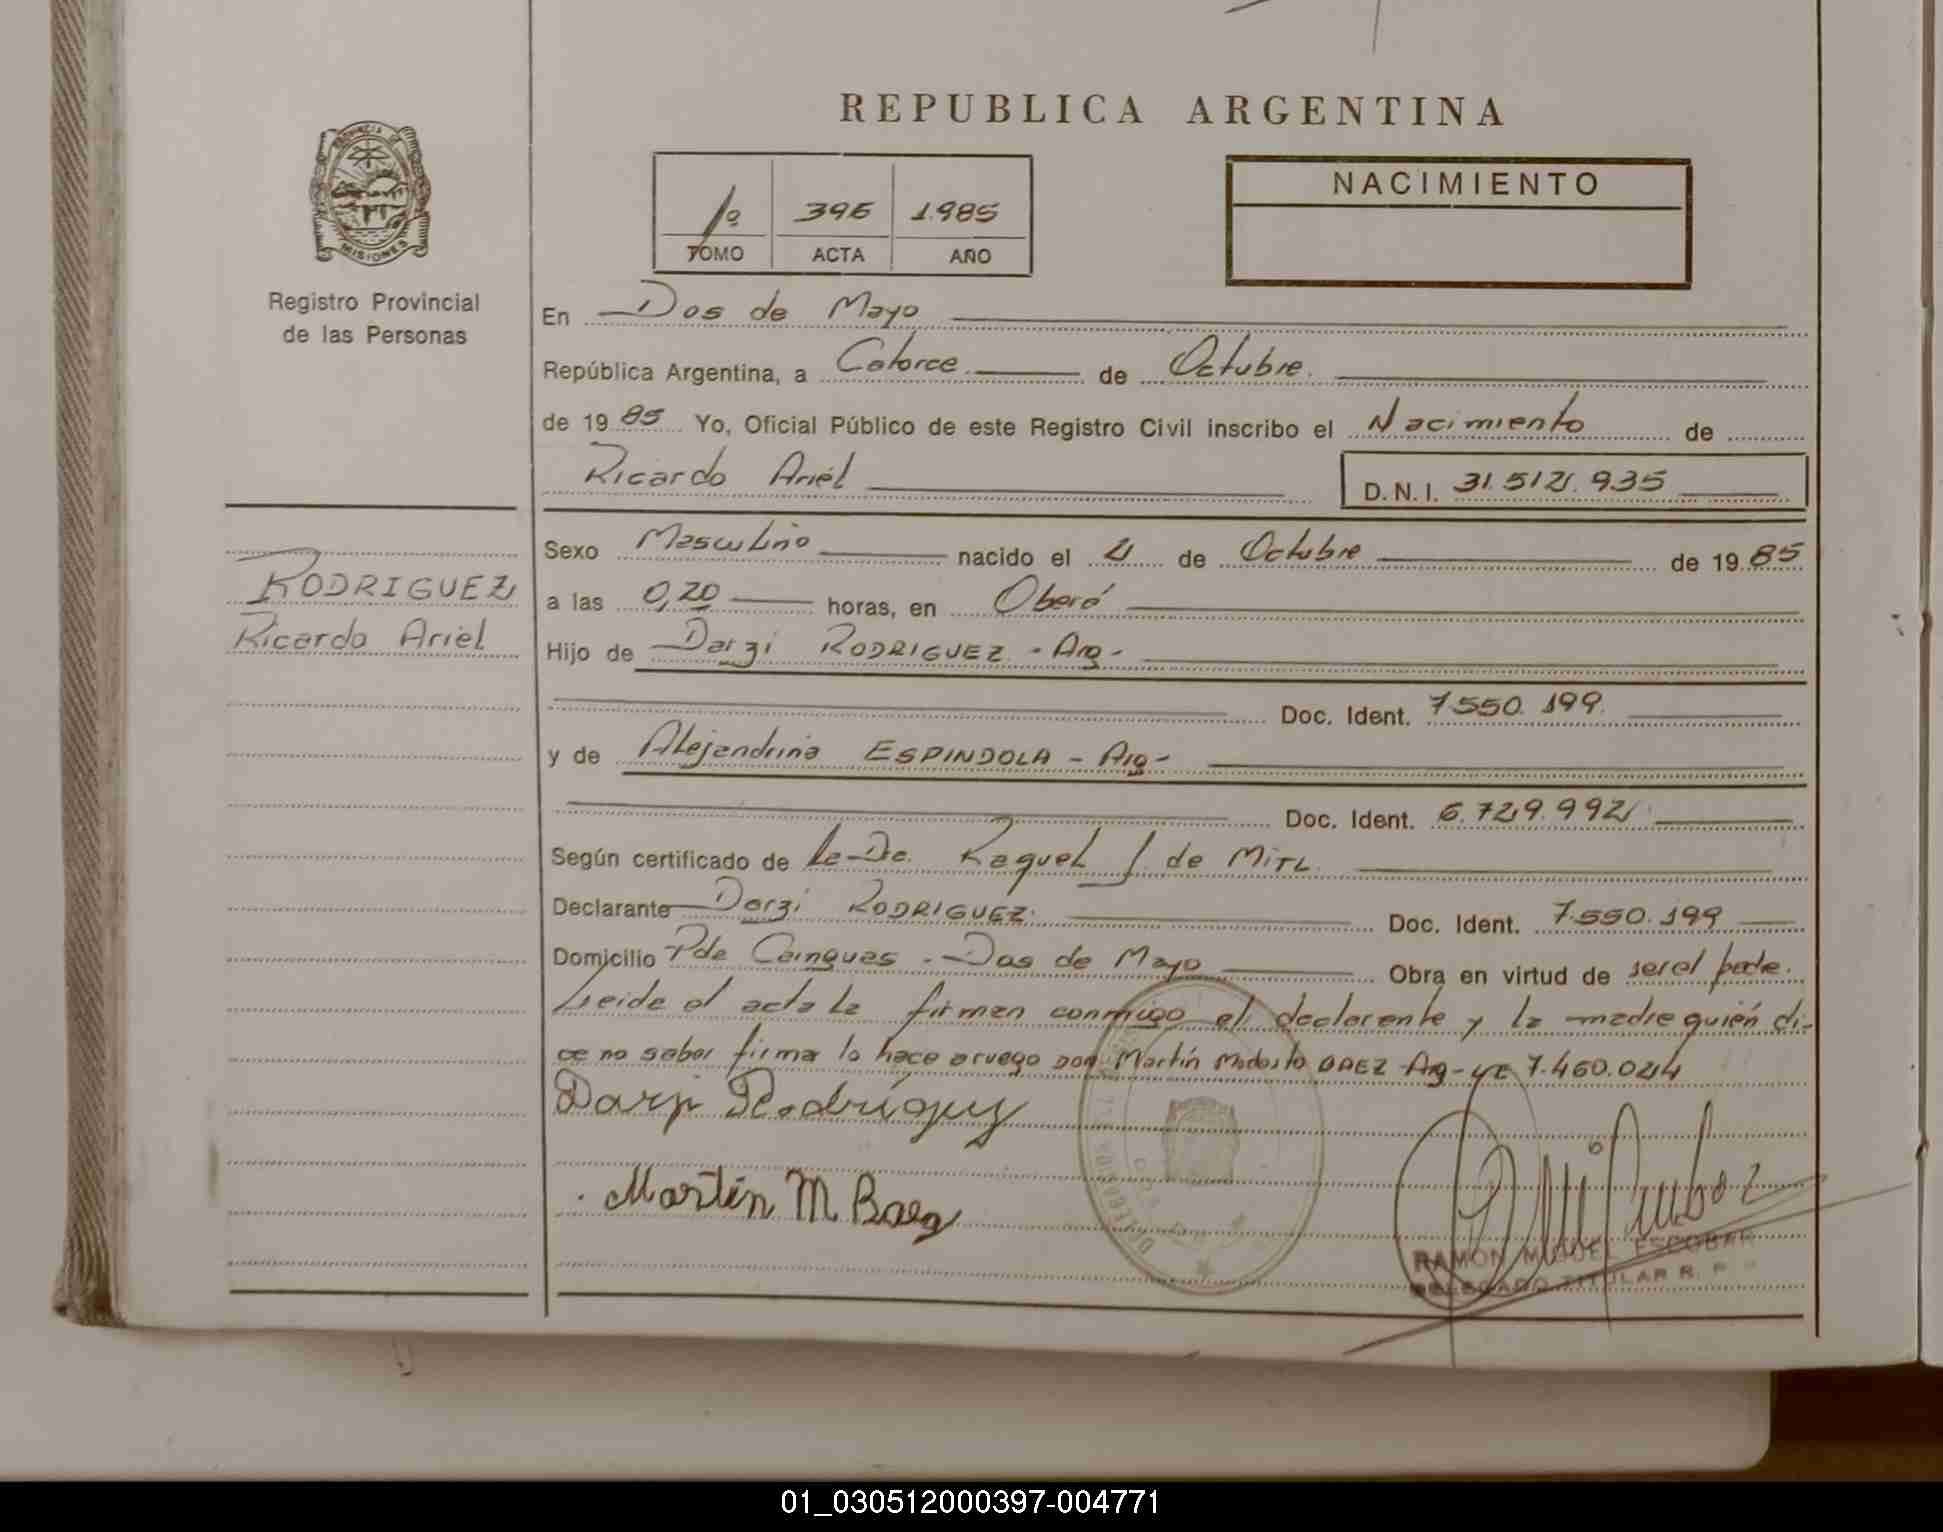 REPUBLICA ARGENTINA
1º 396 1.985
TOMO ACTA AÑO
NACIMIENTO
PROVINCIA DE
MISIONES
Registro Provincial
de las Personas
En Dos de Mayo
República Argentina, a Catorce de Octubre.
de 19 85 Yo, Oficial Público de este Registro Civil inscribo el Nacimiento de
Ricardo Ariel
D.N.I. 31.512.935
RODRIGUEZ
Ricardo Ariel
Sexo Masculino nacido el 2 de Octubre de 19 85
a las 0,20 horas, en Oberá
Hijo de Darzi RODRIGUEZ - Arg -
Doc. Ident. 7.550.199.
y de Alejandrina ESPINDOLA - Arg -
Doc. Ident. 6.729.992
Según certificado de la Dra. Raquel J. de MiTL.
Declarante Darzi RODRIGUEZ. Doc. Ident. 7.550.199
Domicilio Pde Cainguas - Dos de Mayo Obra en virtud de ser el padre.
Leida el acta la firman conmigo el declarante y la madre quién di-
ce no saber firmar lo hace a ruego don Martín Modesto BAEZ Arg - 7.460.024
Darzi Rodriguez
Martín M Baez
RAMON MIGUEL ESCOBAR
DELEGADO TITULAR R. P.
01_030512000397-004771